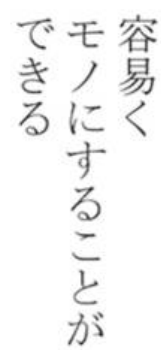 容易く
モノにすることが
できる